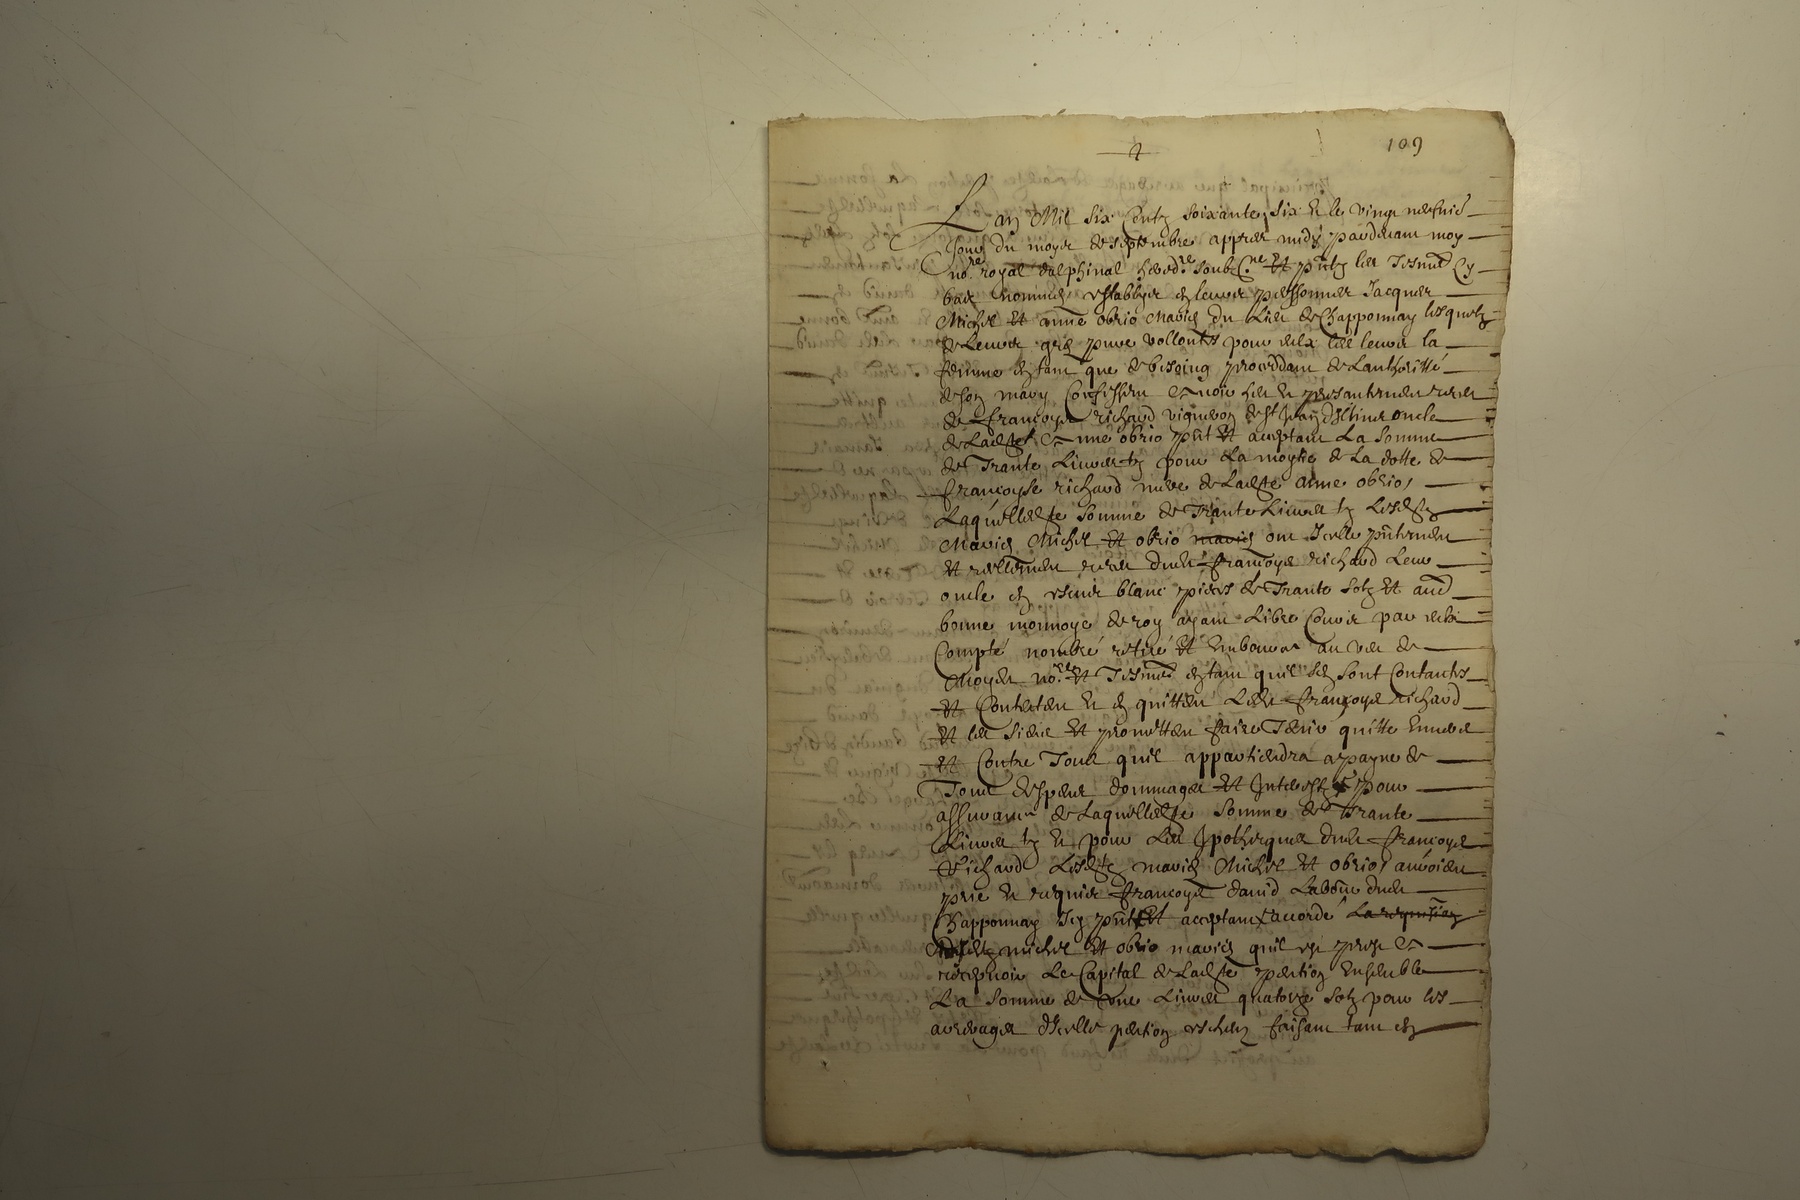 109
Lan Mil six Centz soixante six et le vingt neufvies
Jour du moys de septembre appres midy pardevant moy
no.re royal dalphinal hered.re soubs.ne et pntz les Tesmz Cy
bas nommes establys en leurs personnes Jacques
Michel et anne obrio Maries du lieu de Chapponnay lesquelz
de Leurs gré pure vollontes pour eulx les leurs la
femme en tant que de besoing procedant de Lauthoritté
de son mary Confessent avoir heu et presantement receu
de françoys richard vigneron de st Jean oncle
de Ladte anne obrio pnt et aceptant La somme
de Trante Livres tz pour La moytie de La dotte de
françoyse richard mere de Ladte anne obrio
Laquelle dte somme de Trante Livres tz Lesdtz
Maries Michel et obrio maries ont Icelle pntement
et reellement receu dudt françoys richard Leur
oncle en escus blanc pieces de Trante solz et autre
bonne monnoye de roy ayant Libre Cours par eulx
Compté nombré retiré et Emboursé au veu de
Moydt no.re et Tesmz entant quil sen sont Contantes
et Contentent et en quittent Ledt françoys richard
et les siens et promettent faire Tenir quitte Envers
et Contre Tous quil appartiendra a payne de
Tous despens dommages et Interestz et pour
assurance de Laquelle dte somme de Trante
Livres tz et pour Les Ipotheques dudt françoys
Richard Lesdtz maries Michel et obrio auroient
prie et requis françoys david Labour dudt
Chapponnay Icy pnt et acceptant accorde La requision
desdtz michel et obrio maries quil
recepvoir Le Capital de Ladte pention Ensemble
La somme de une Livres quatorze solz pour les
arrerages dIcelle pention escheu faisant tant en